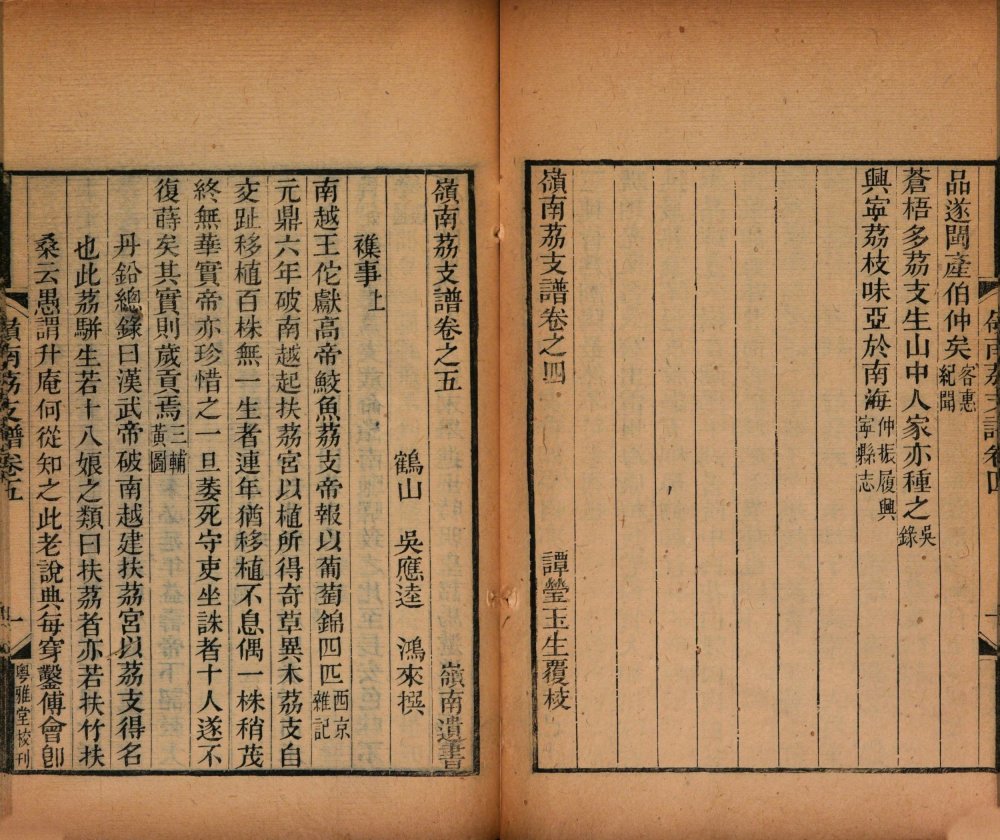 品遂閩產伯仲矣客惠紀聞
蒼梧多荔支生山中人家亦種之吳錄
興寧荔枝味亞於南海仲振履興寧縣志
嶺南荔支譜卷之四
譚瑩玉生覆校
嶺南荔支譜卷四
嶺南荔支譜卷之五
嶺南遺書
鶴山 吳應逵 鴻來撰
襍事上
南越王佗獻高帝鮫魚荔支帝報以葡萄錦四匹西京雜記
元鼎六年破南越起扶荔宮以植所得奇草異木荔支自
交趾移植百株無一生者連年猶移植不息偶一株稍茂
終無華實帝亦珍惜之一旦萎死守吏坐誅者十人遂不
復蒔矣其實則歲貢焉三輔黃圖
丹鉛總錄曰漢武帝破南越建扶荔宮以荔支得名
也此荔駢生若十八娘之類曰扶荔者亦若扶竹扶
桑云愚謂升庵何從知之此老說典每穿鑿傅會卽
嶺南荔支譜卷五
一
粵雅堂校刊